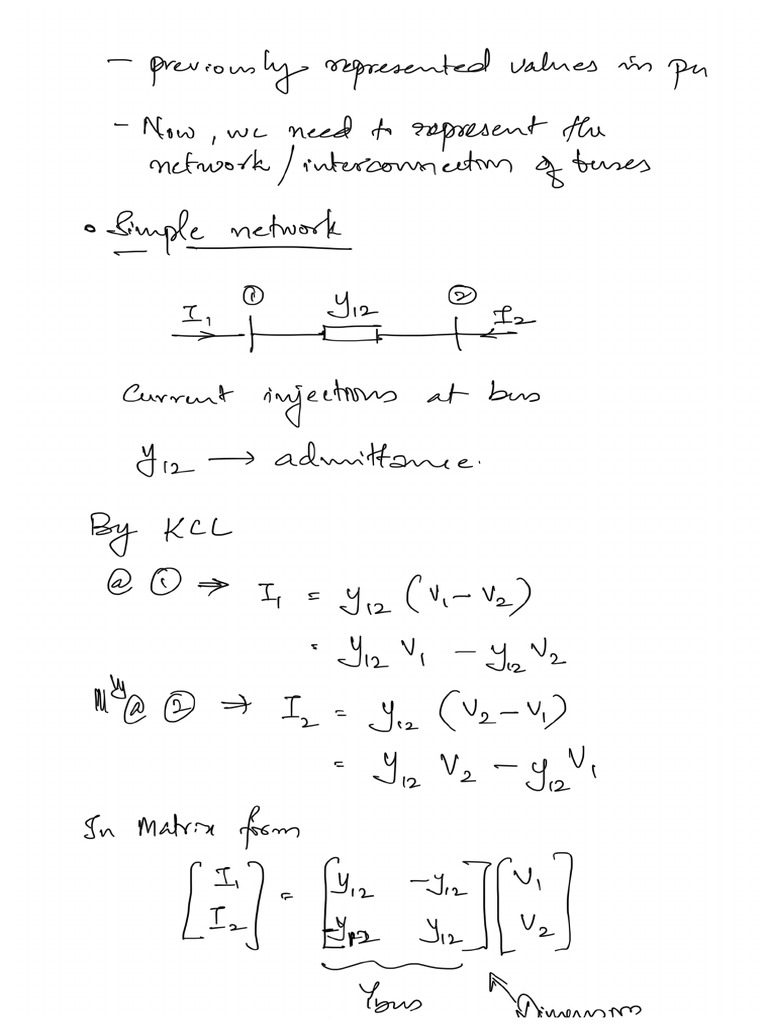 - previously represented values in pu
- Now, we need to represent the
network / interconnection of buses
• Simple network
① y12 ②
I1 I2
Current injections at bus
y12 → admittance.
By KCL
@ ① ⇒ I1 = y12 (V1 - V2)
= y12 V1 - y12 V2
@ ② ⇒ I2 = y12 (V2 - V1)
= y12 V2 - y12 V1
In Matrix form
[I1 I2] = [y12 -y12 -y12 y12] [V1 V2]
Ybus
Dimensions